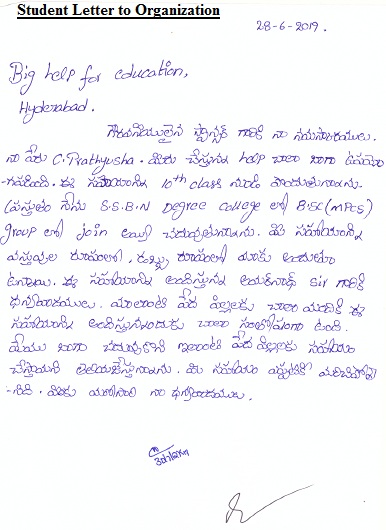 Student Letter to Organization
28-6-2019.
Big help for education,
Hyderabad.
గౌరవనీయులైన ఫ్యాన్సర్ గారికి నా నమస్కారములు.
నా పేరు C. Prathyusha. మీరు చేస్తున్న help చాలా బాగా ఉపయో
-గపడింది. ఈ సహాయాన్ని 10th class నుండి పొందుతున్నాను.
ప్రస్తుతం నేను S.S.B.N Degree College లో B.SC(MPCS)
group లో join అయ్యి చదువుతున్నాను. మీ సహాయాన్ని
వస్తువుల రూపంలో, డబ్బు రూపంలో మాకు అందుతూ
ఉన్నాయి. ఈ సహాయాన్ని అందిస్తున్న sir గారికి
ధన్యవాదములు. మాలాంటి పేద పిల్లలకు చాలా మందికి ఈ
సహాయాన్ని అందిస్తున్నందుకు చాలా సంతోషంగా ఉంది.
మేము బాగా చదువుకొని ఇలాంటి పేద పిల్లలకు సహాయం
చేస్తామని తెలియజేస్తున్నాను. మీ సహాయం ఎప్పటికీ మరిచిపోలే
-నిది. మీకు మరోసారి నా ధన్యవాదములు.